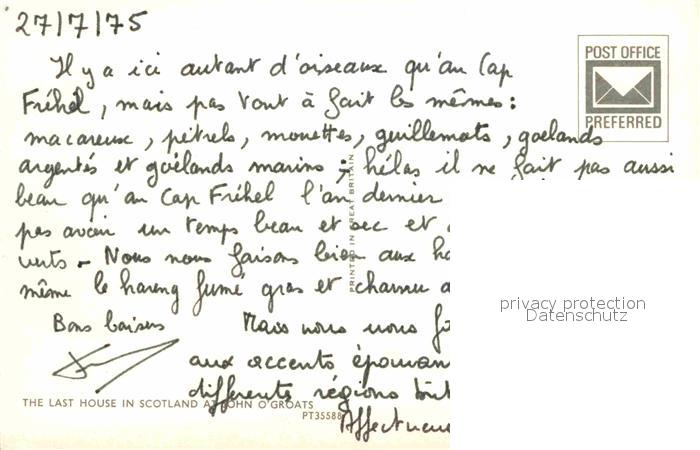 27/7/75
Il y a ici autant d'oiseaux qu'au Cap
Fréhel, mais pas tout à fait les mêmes :
macareux, pétrels, mouettes, guillemots, goélands
argentés et goélands marins ; hélas il ne fait pas aussi
beau qu'au Cap Fréhel l'an dernier
pas avoir un temps beau et sec et
verts - Nous nous faisons bien aux
même le hareng fumé gras et charnu
Bons baisers
Mais nous nous
aux accents
différentes régions
Affectueu
POST OFFICE
PREFERRED
PRINTED IN GREAT BRITAIN
privacy protection
Datenschutz
THE LAST HOUSE IN SCOTLAND AT JOHN O'GROATS
PT35588